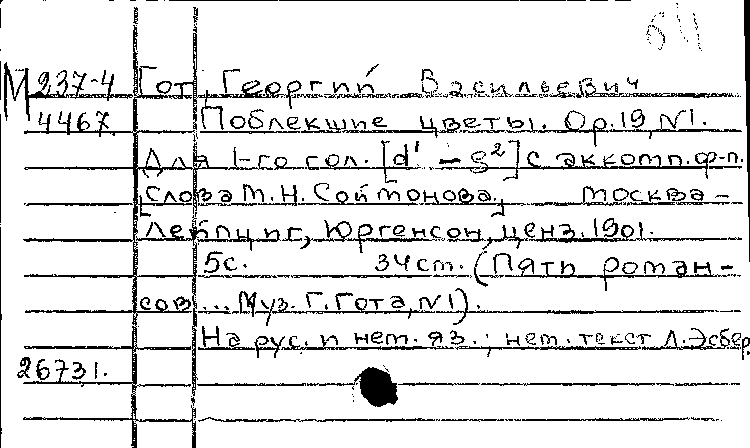 64
М 237-4 Гот, Георгий Васильевич
4467. Поблекшие цветы. Op.19, №1.
Для 1-го гол. [d' – g²] с аккомп. ф-п.
[Слова М.Н. Соймонова.] Москва –
Лейпциг, Юргенсон, ценз. 1901.
5с. 34см. (Пять роман-
сов ... Муз. Г. Гота, №1).
На рус. и нем. яз.; нем. текст Л. Эсбер
26731.